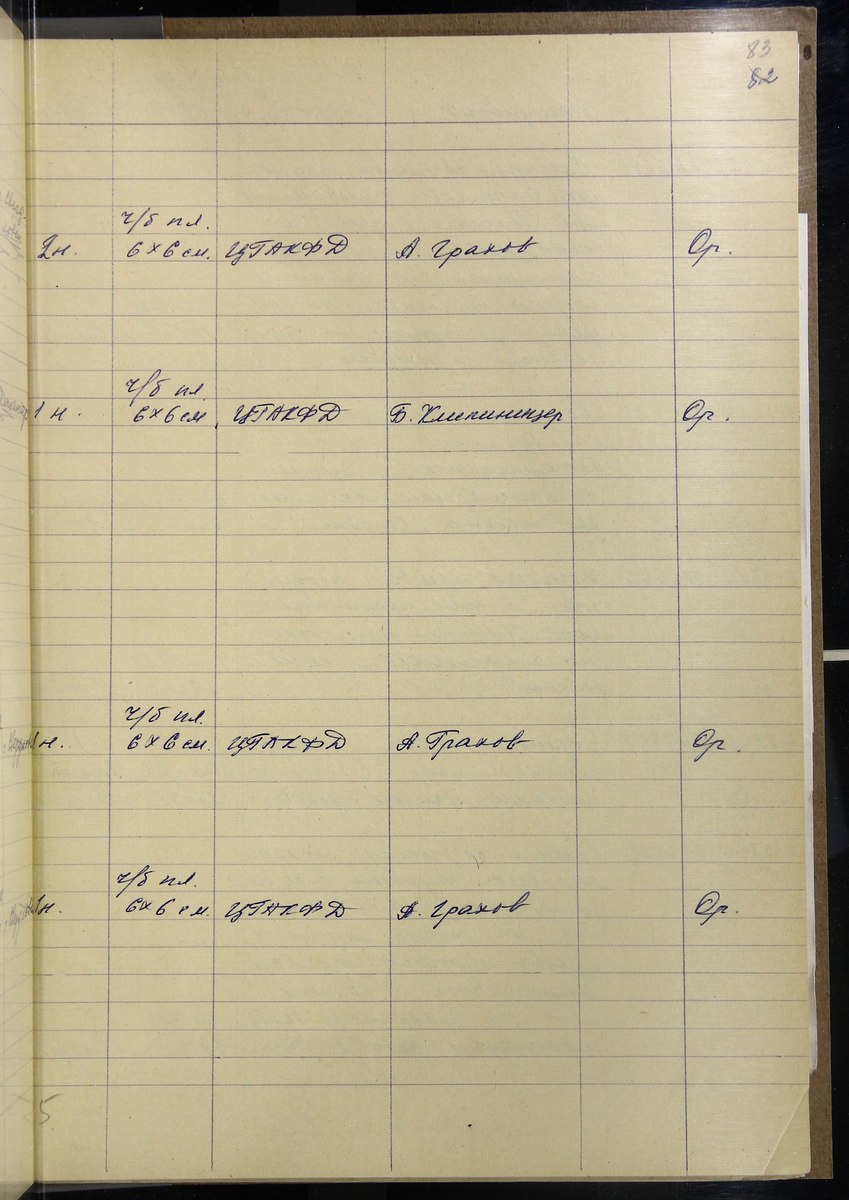 83
82
ч/б пл.
2н. 6×6 см. ЦГАКФД А. Грахов Ор.
ч/б пл.
1 н. 6×6 см, ЦГАКФД Б. Клипиницер Ор.
ч/б пл.
1н. 6×6 см. ЦГАКФД А. Грахов Ор.
ч/б пл.
1н. 6×6 см. ЦГАКФД А. Грахов Ор.
5